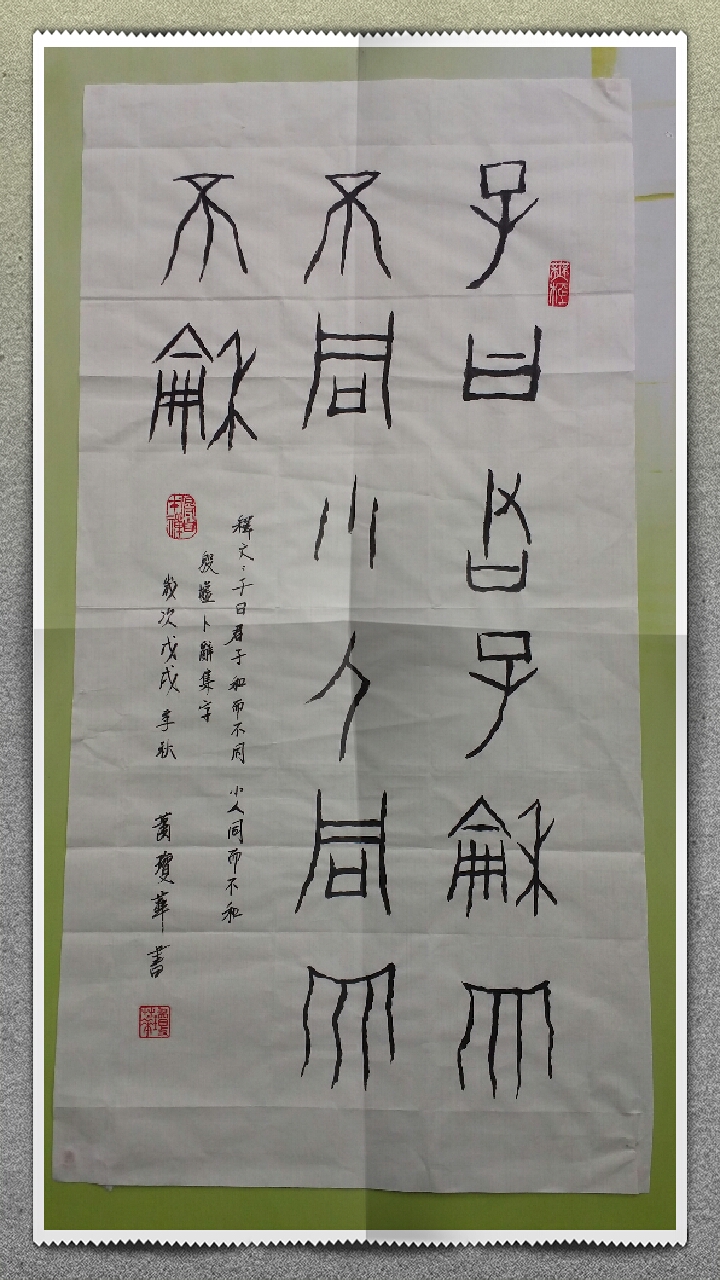 子曰君子龢而
不同小人同而
不龢
釋文：子曰君子和而不同　小人同而不和
殷墟卜辭集字
歲次戊戌季秋　黃瓊華書